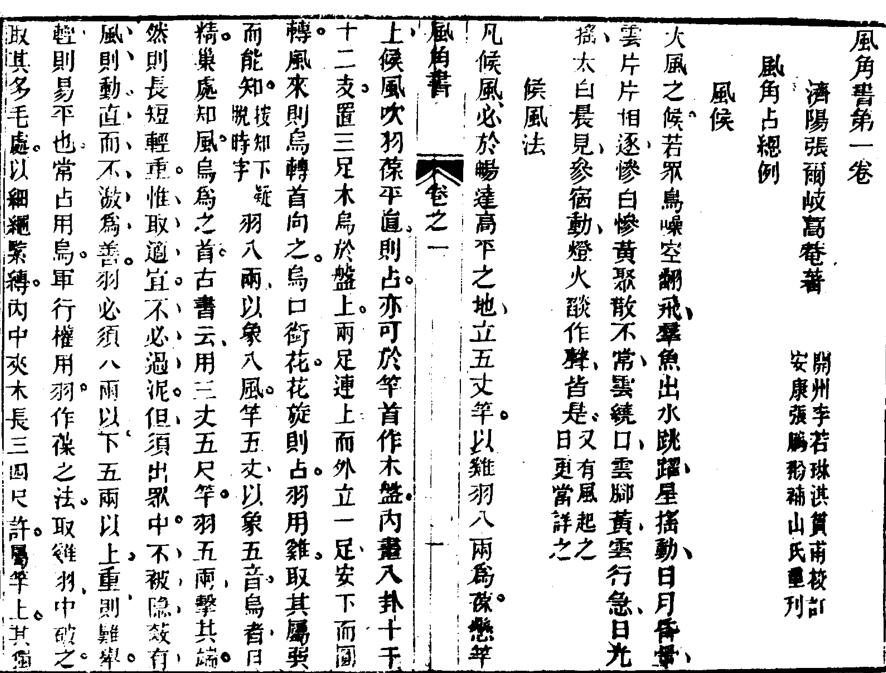 風角書第一卷
濟陽張爾岐蒿菴著
開州李若琳淇篔甫校訂
安康張鵬翂補山氏重刊
風角占總例
風候
大風之候若眾鳥噪空翻飛羣魚出水跳躍星搖動日月昏暈
雲片片相逐慘白慘黃聚散不常雲繞口雲腳黃雲行急日光
搖太白晨見參宿動燈火燄作聲皆是又有風起之
日更當詳之
候風法
凡候風必於暢達高平之地立五丈竿以雞羽八兩為葆懸竿
風角書 卷之一 一
上候風吹羽葆平直則占亦可於竿首作木盤內畫八卦十干
十二支置三足木烏於盤上兩足連上而外立一足安下而圓
轉風來則烏轉首向之烏口銜花花旋則占羽用雞取其屬巽
而能知按知下疑
脫時字羽八兩以象八風竿五丈以象五音烏者日
精巢處知風烏為之首古書云用三丈五尺竿羽五兩擊其端
然則長短輕重惟取適宜不必過泥但須出眾中不被隱蔽有
風則動直而不激為善羽必須八兩以下五兩以上重則難舉
輕則易平也常占用烏軍行權用羽作葆之法取雞羽中破之
取其多毛處以細繩緊縛內中夾木長三四尺許屬竿上其